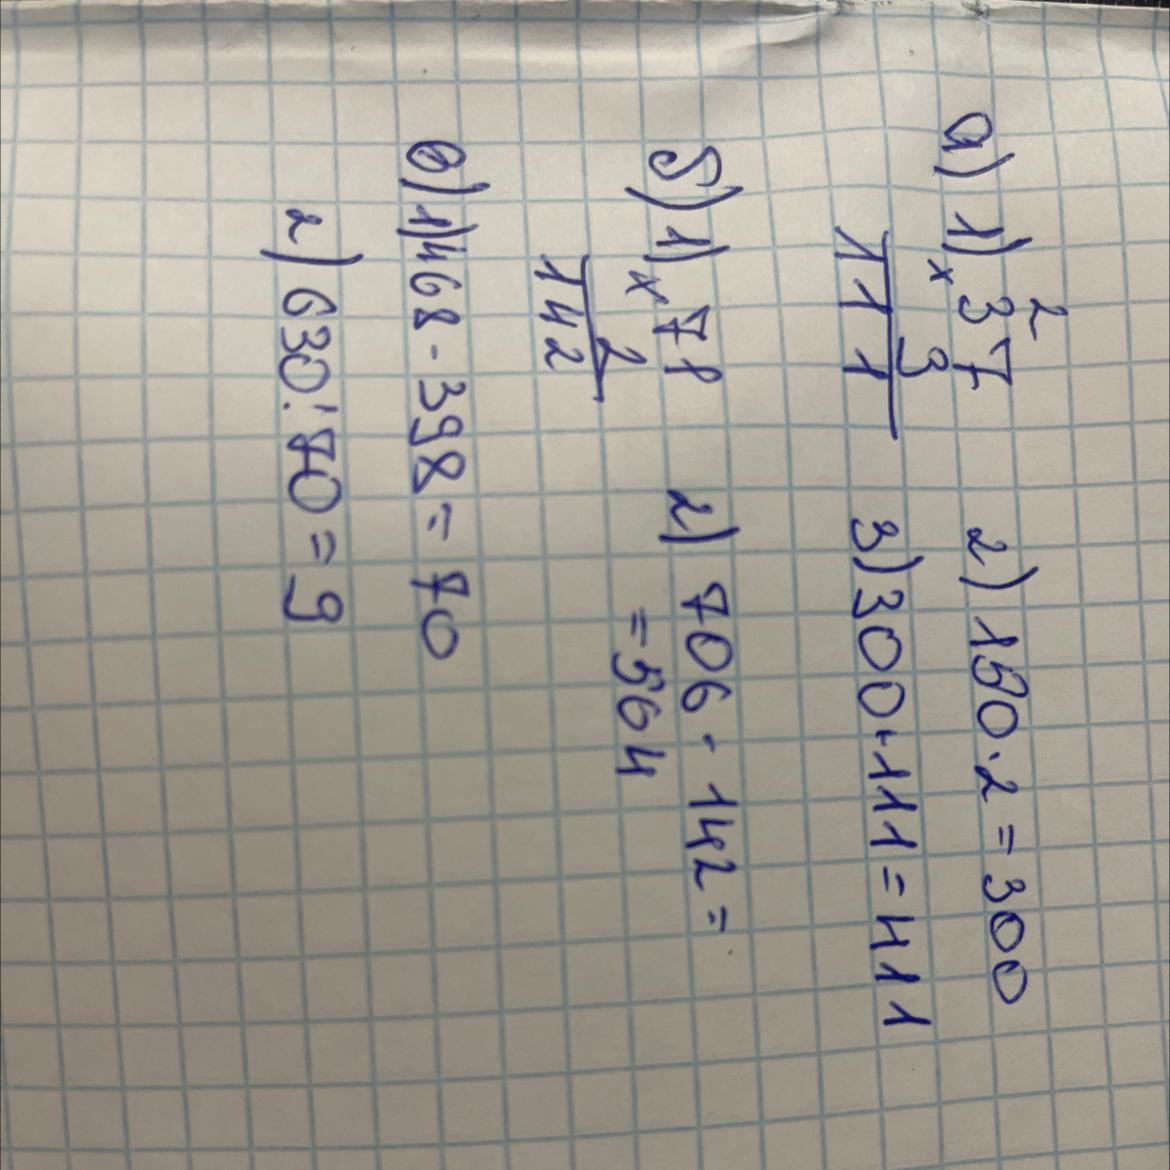 а) 1) 37 2) 150·2=300
× 3
111 3) 300+111=411
б) 1) 71 2) 706-142=
× 2 =564
142
в) 1) 468-398=70
2) 630:70=9